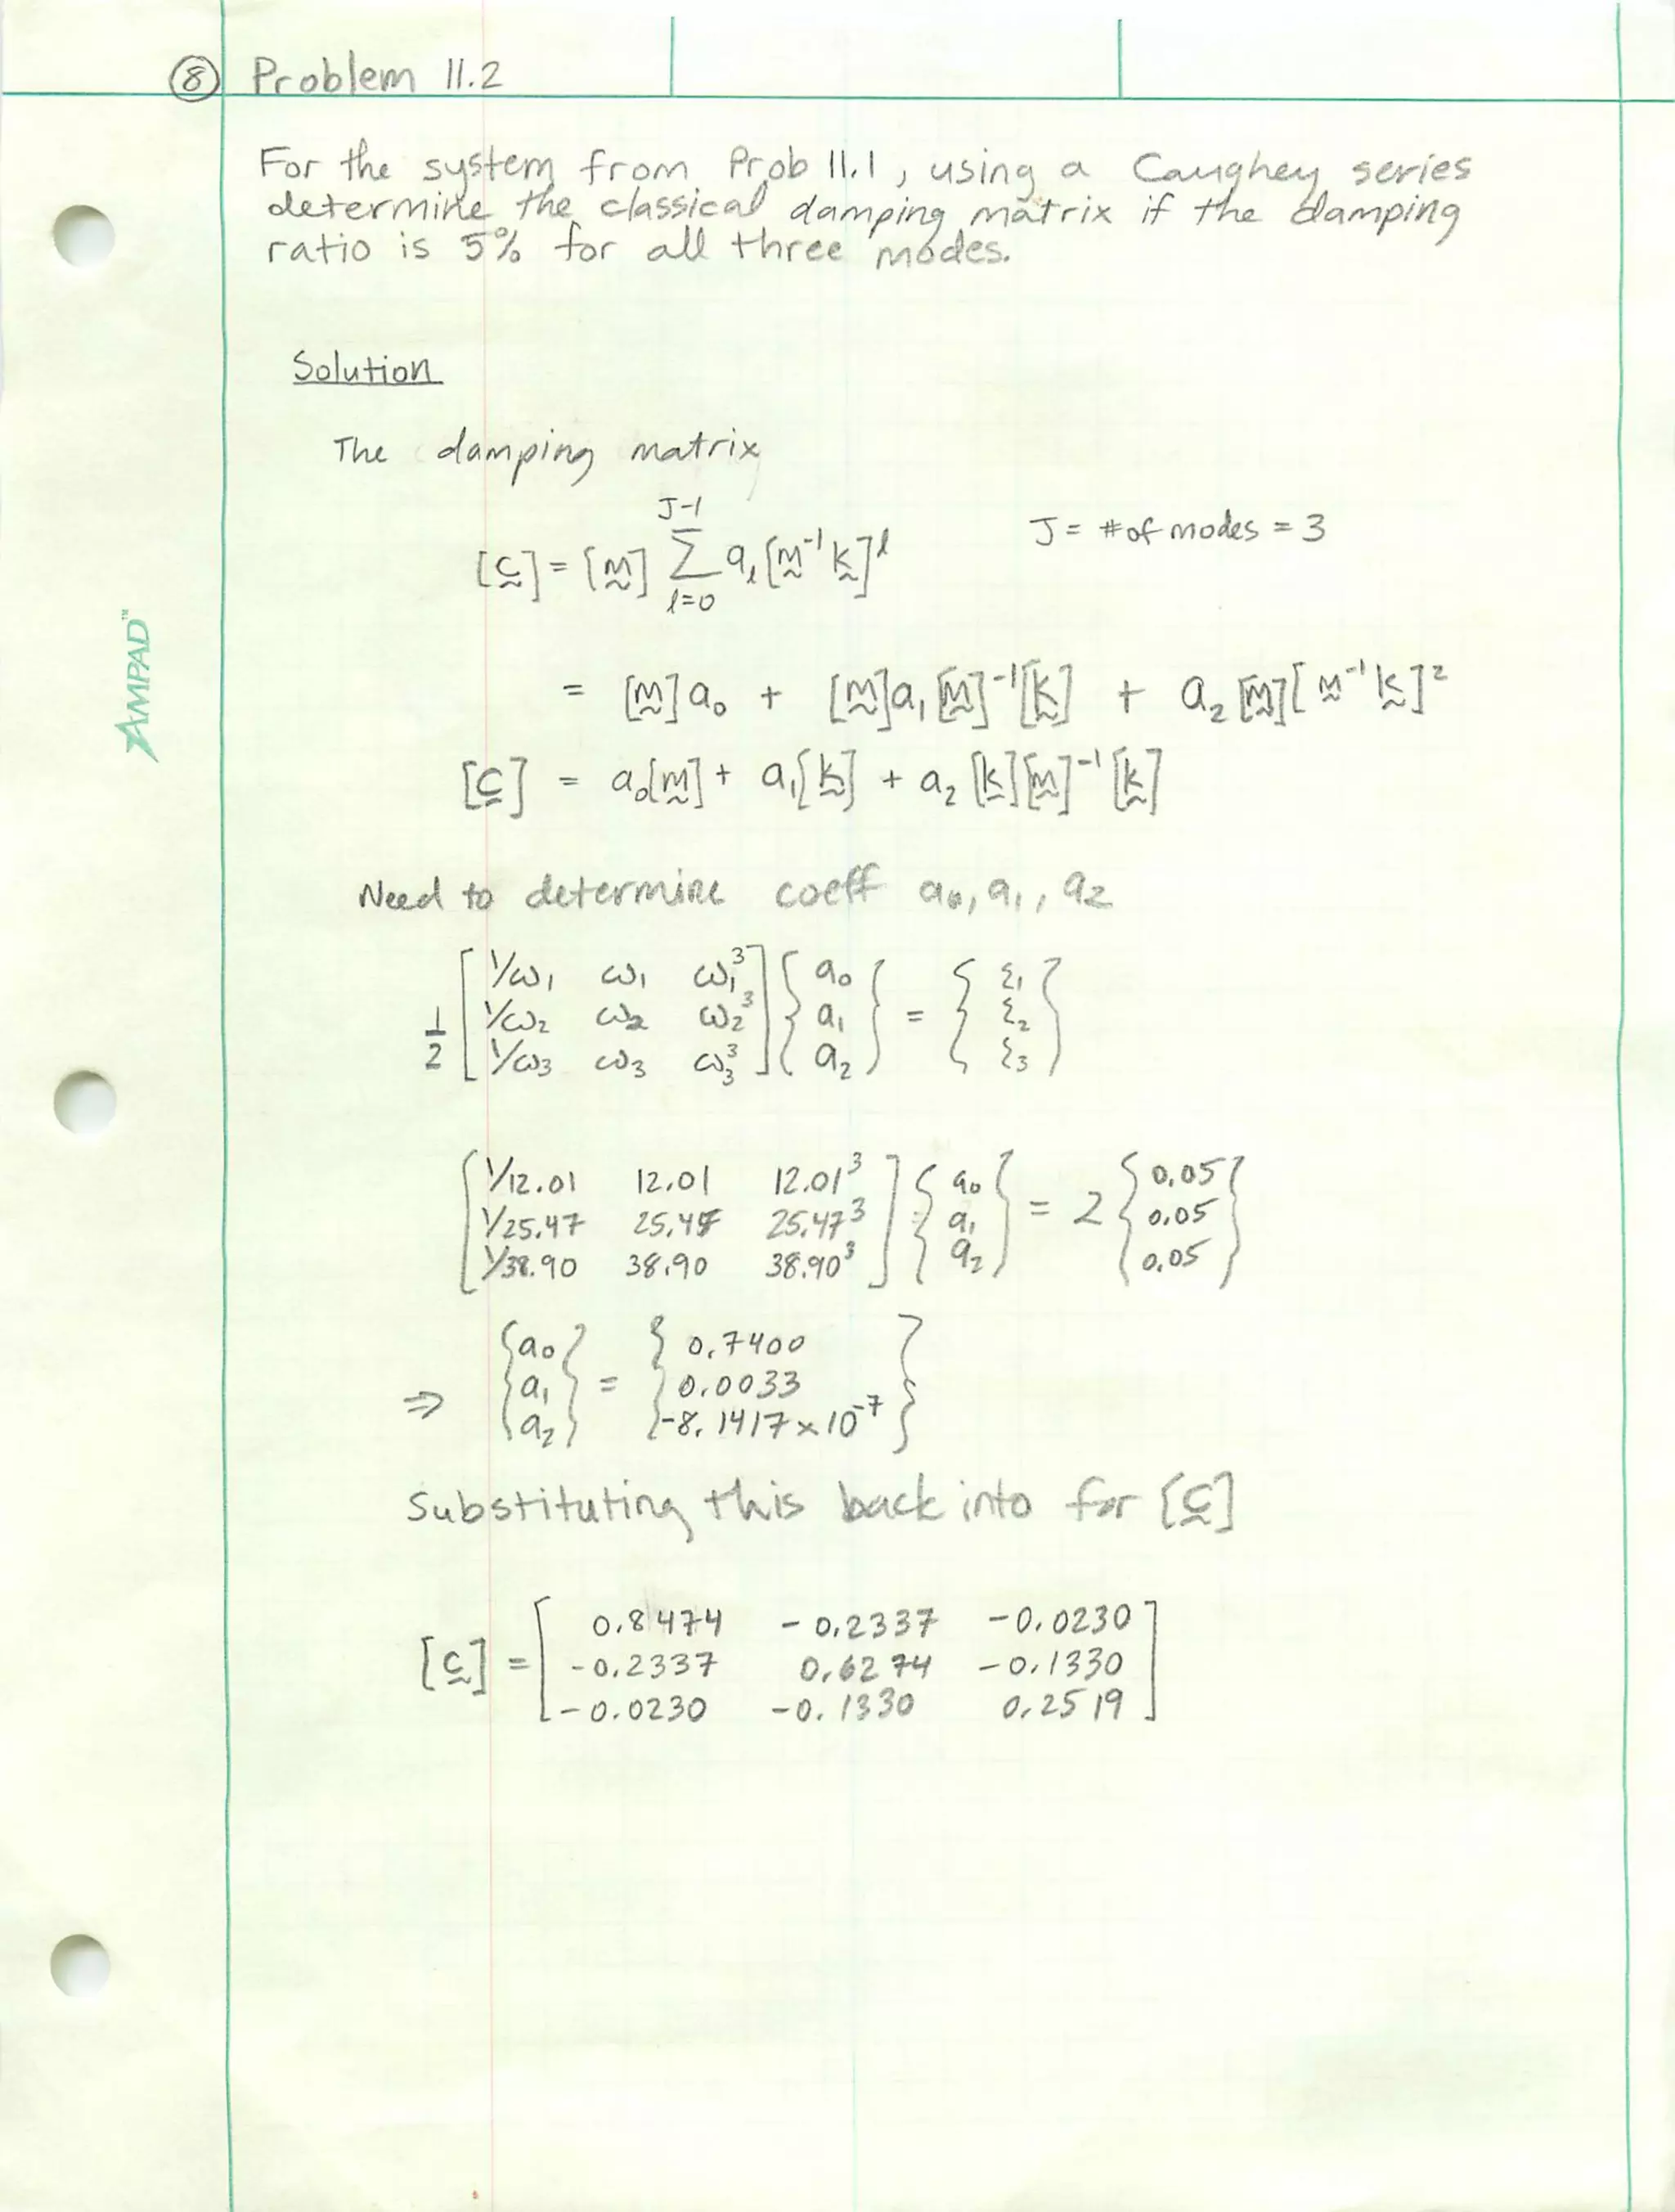 ⑧ Problem 11.2
For the system from Prob 11.1, using a Caughey series
determine the classical damping matrix if the damping
ratio is 5% for all three modes.
Solution
The damping matrix
J-1
[c] = [m] Σ aₗ [m⁻¹ k]ˡ J = # of modes = 3
l=0
= [m] a₀ + [m] a₁ [m]⁻¹[k] + a₂ [m][m⁻¹ k]²
[c] = a₀[m] + a₁[k] + a₂ [k][m]⁻¹[k]
AMPAD™
Need to determine coeff a₀, a₁, a₂
1/ω₁ ω₁ ω₁³ a₀ ξ₁
1/2 1/ω₂ ω₂ ω₂³ a₁ = ξ₂
1/ω₃ ω₃ ω₃³ a₂ ξ₃
1/12.01 12.01 12.01³ a₀ 0.05
1/25.47 25.47 25.47³ a₁ = 2 0.05
1/38.90 38.90 38.90³ a₂ 0.05
a₀ 0.7400
⇒ a₁ = 0.0033
a₂ -8.1417 × 10⁻⁷
Substituting this back into for [c]
0.8474 -0.2337 -0.0230
[c] = -0.2337 0.6274 -0.1330
-0.0230 -0.1330 0.2519